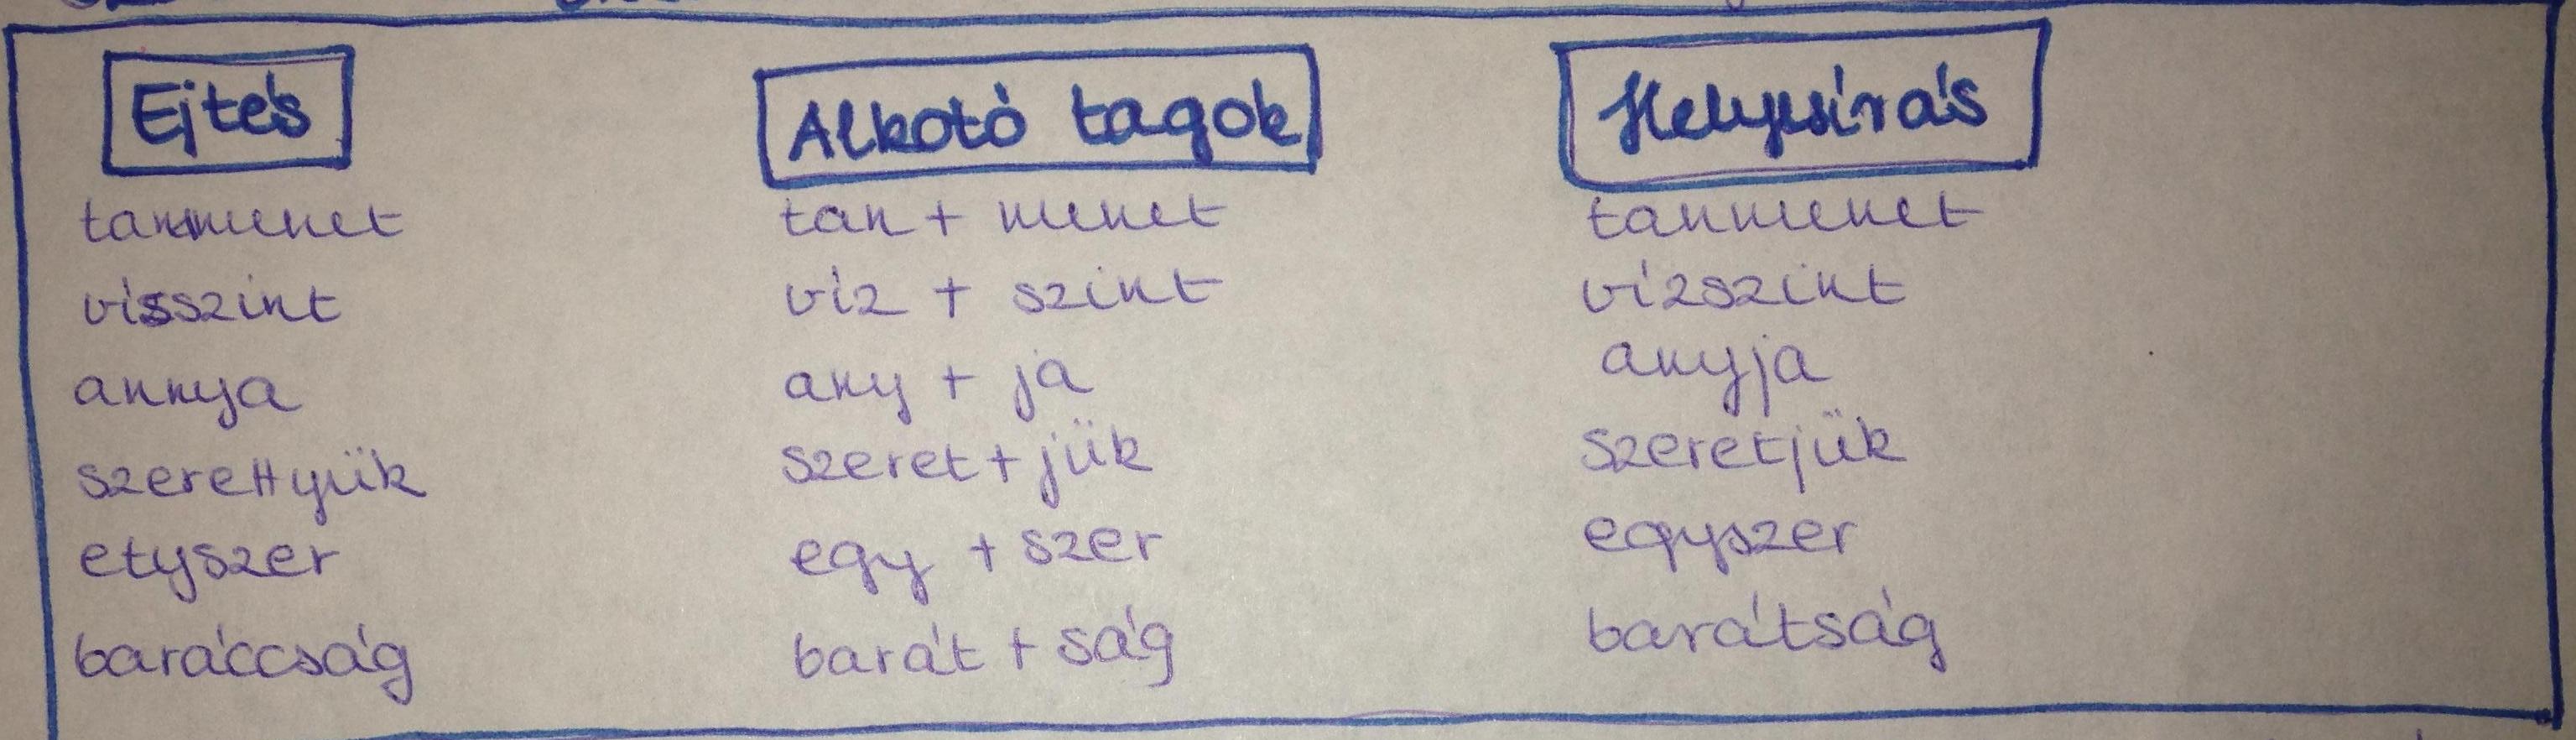 Ejtés Alkotó tagok Helyesírás
tammenet tan + menet tanmenet
visszint víz + szint vízszint
annya any + ja anyja
szerettyük szeret + jük szeretjük
etyszer egy + szer egyszer
baráccság barát + ság barátság